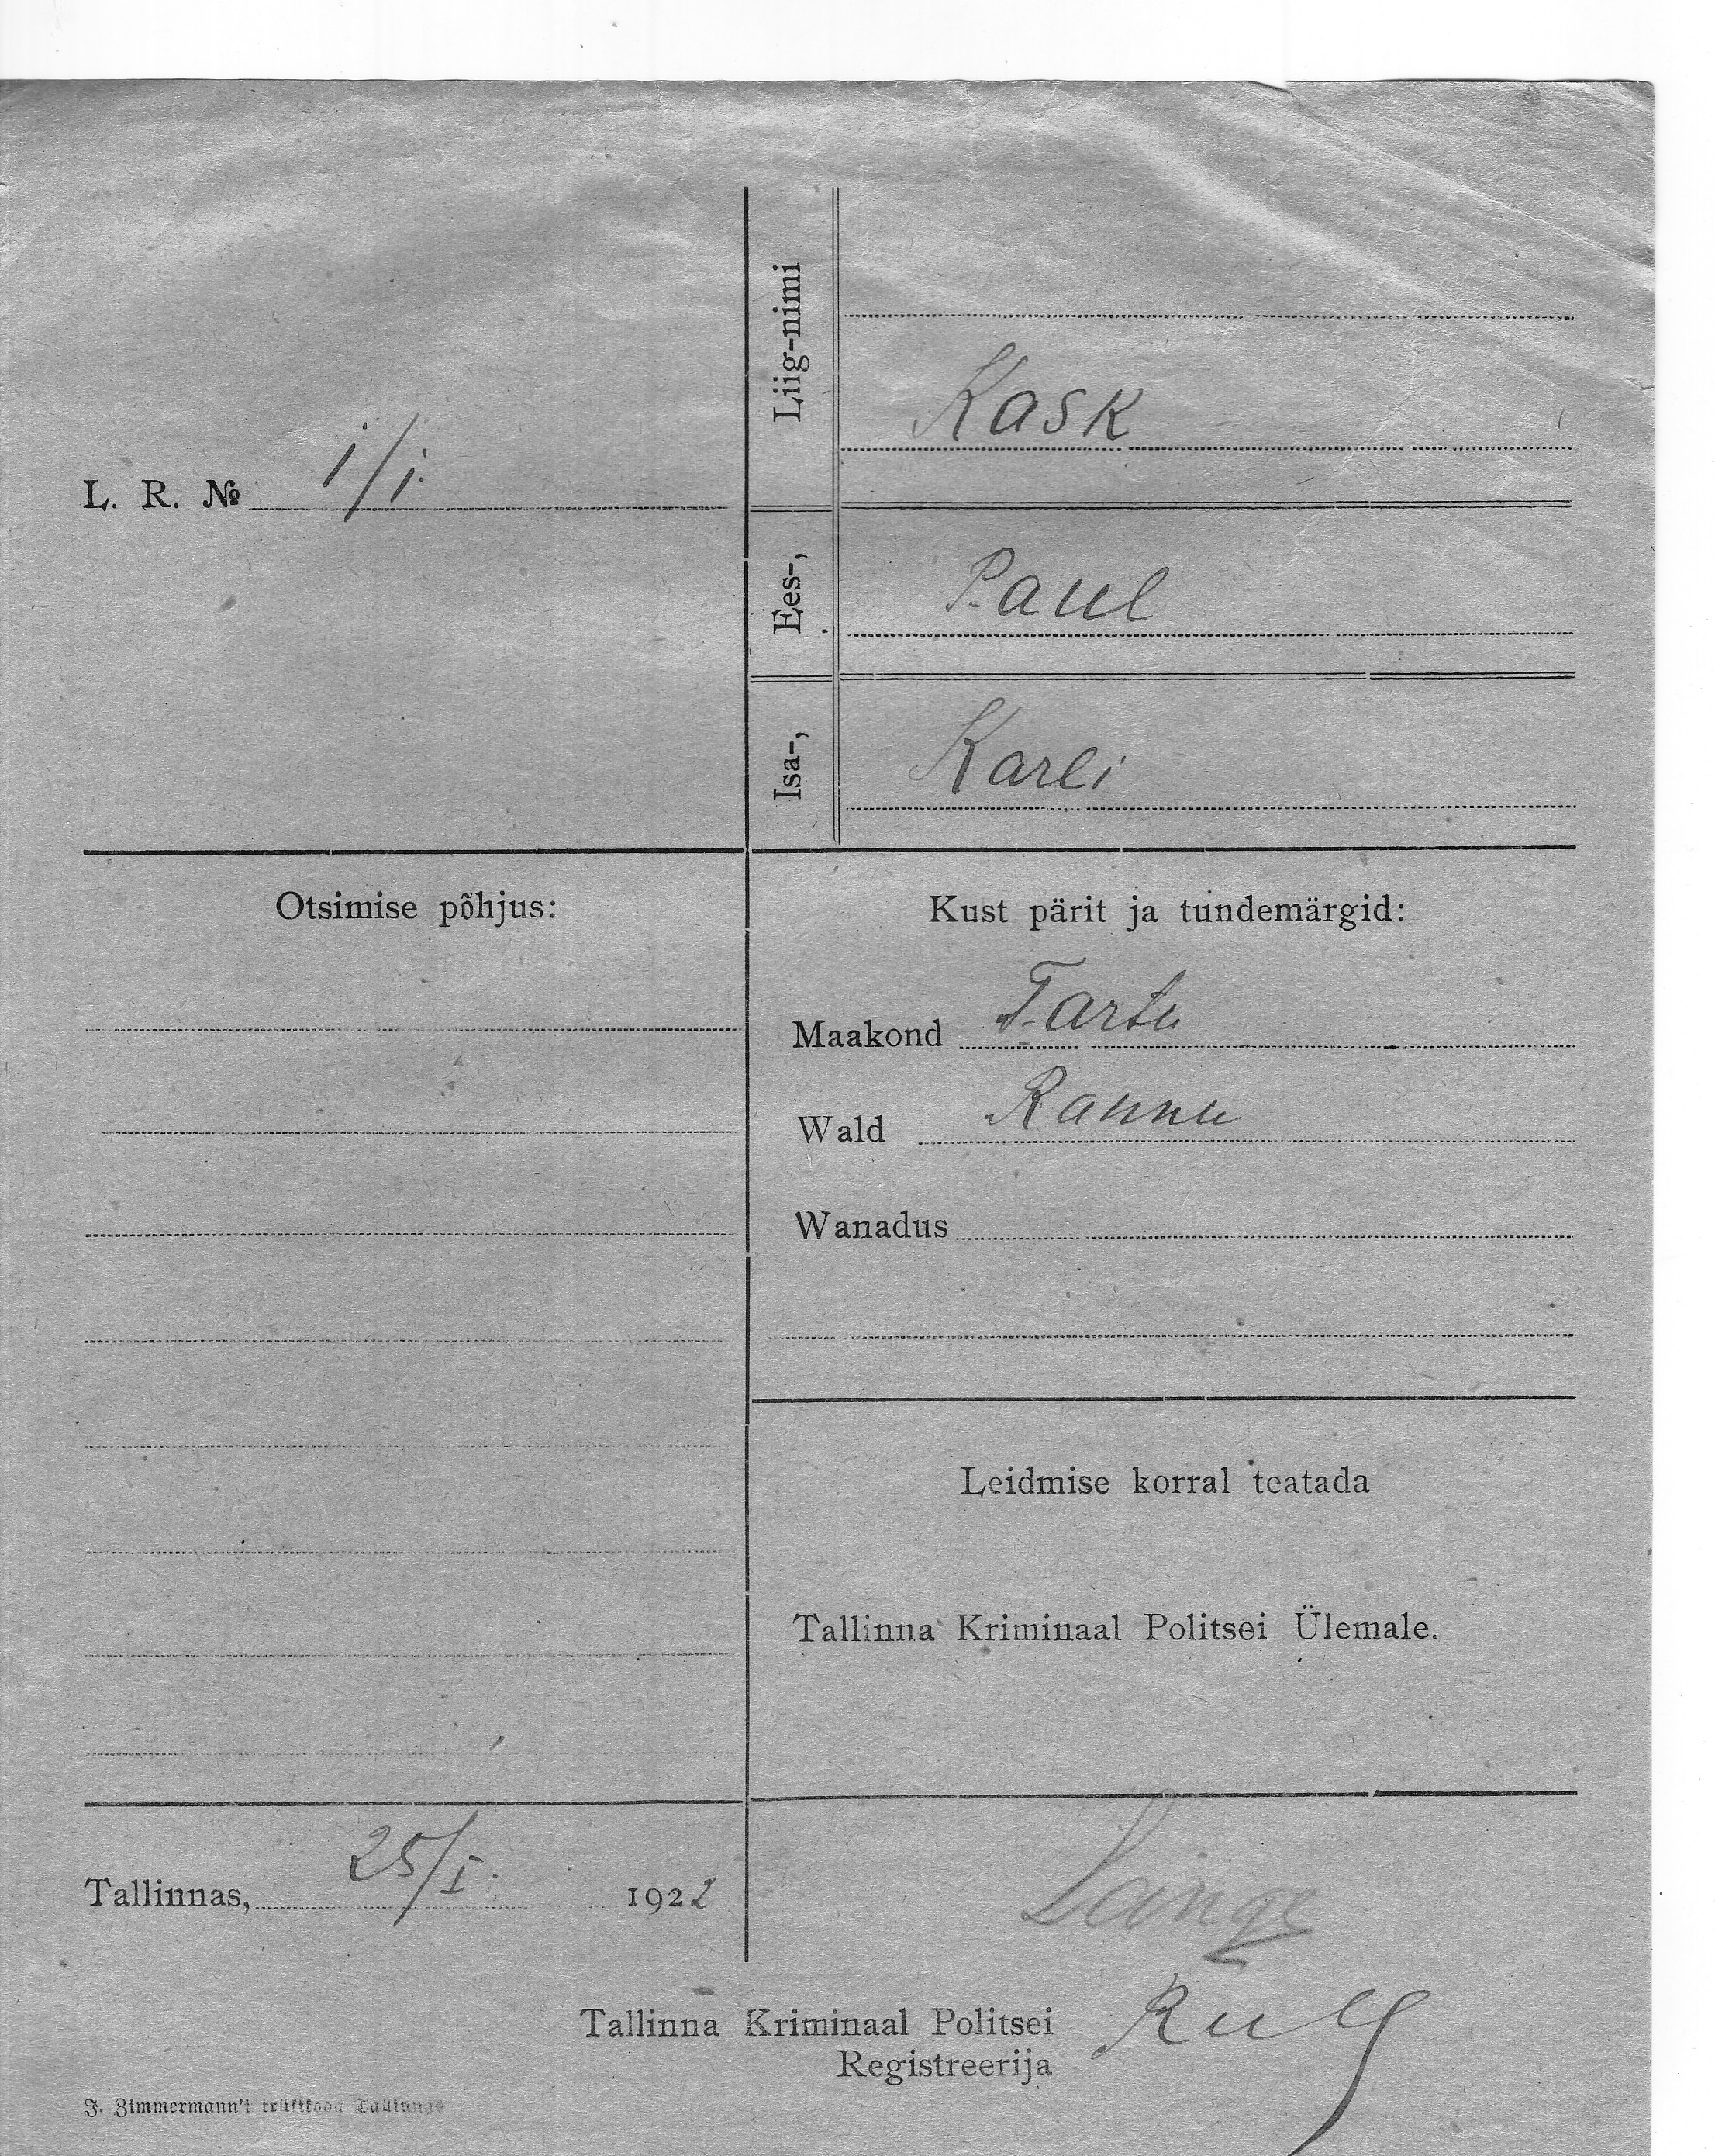 L. R. № 1/1.
Liig-nimi
Kask
Ees-,
Paul
Isa-,
Karli
Otsimise põhjus:
Kust pärit ja tundemärgid:
Maakond Tartu
Wald Rannu
Wanadus
Leidmise korral teatada
Tallinna Kriminaal Politsei Ülemale.
Tallinnas, 25/I. 1922
Lange
Tallinna Kriminaal Politsei
Registreerija
J. Zimmermann'i trükikoda Tallinnas